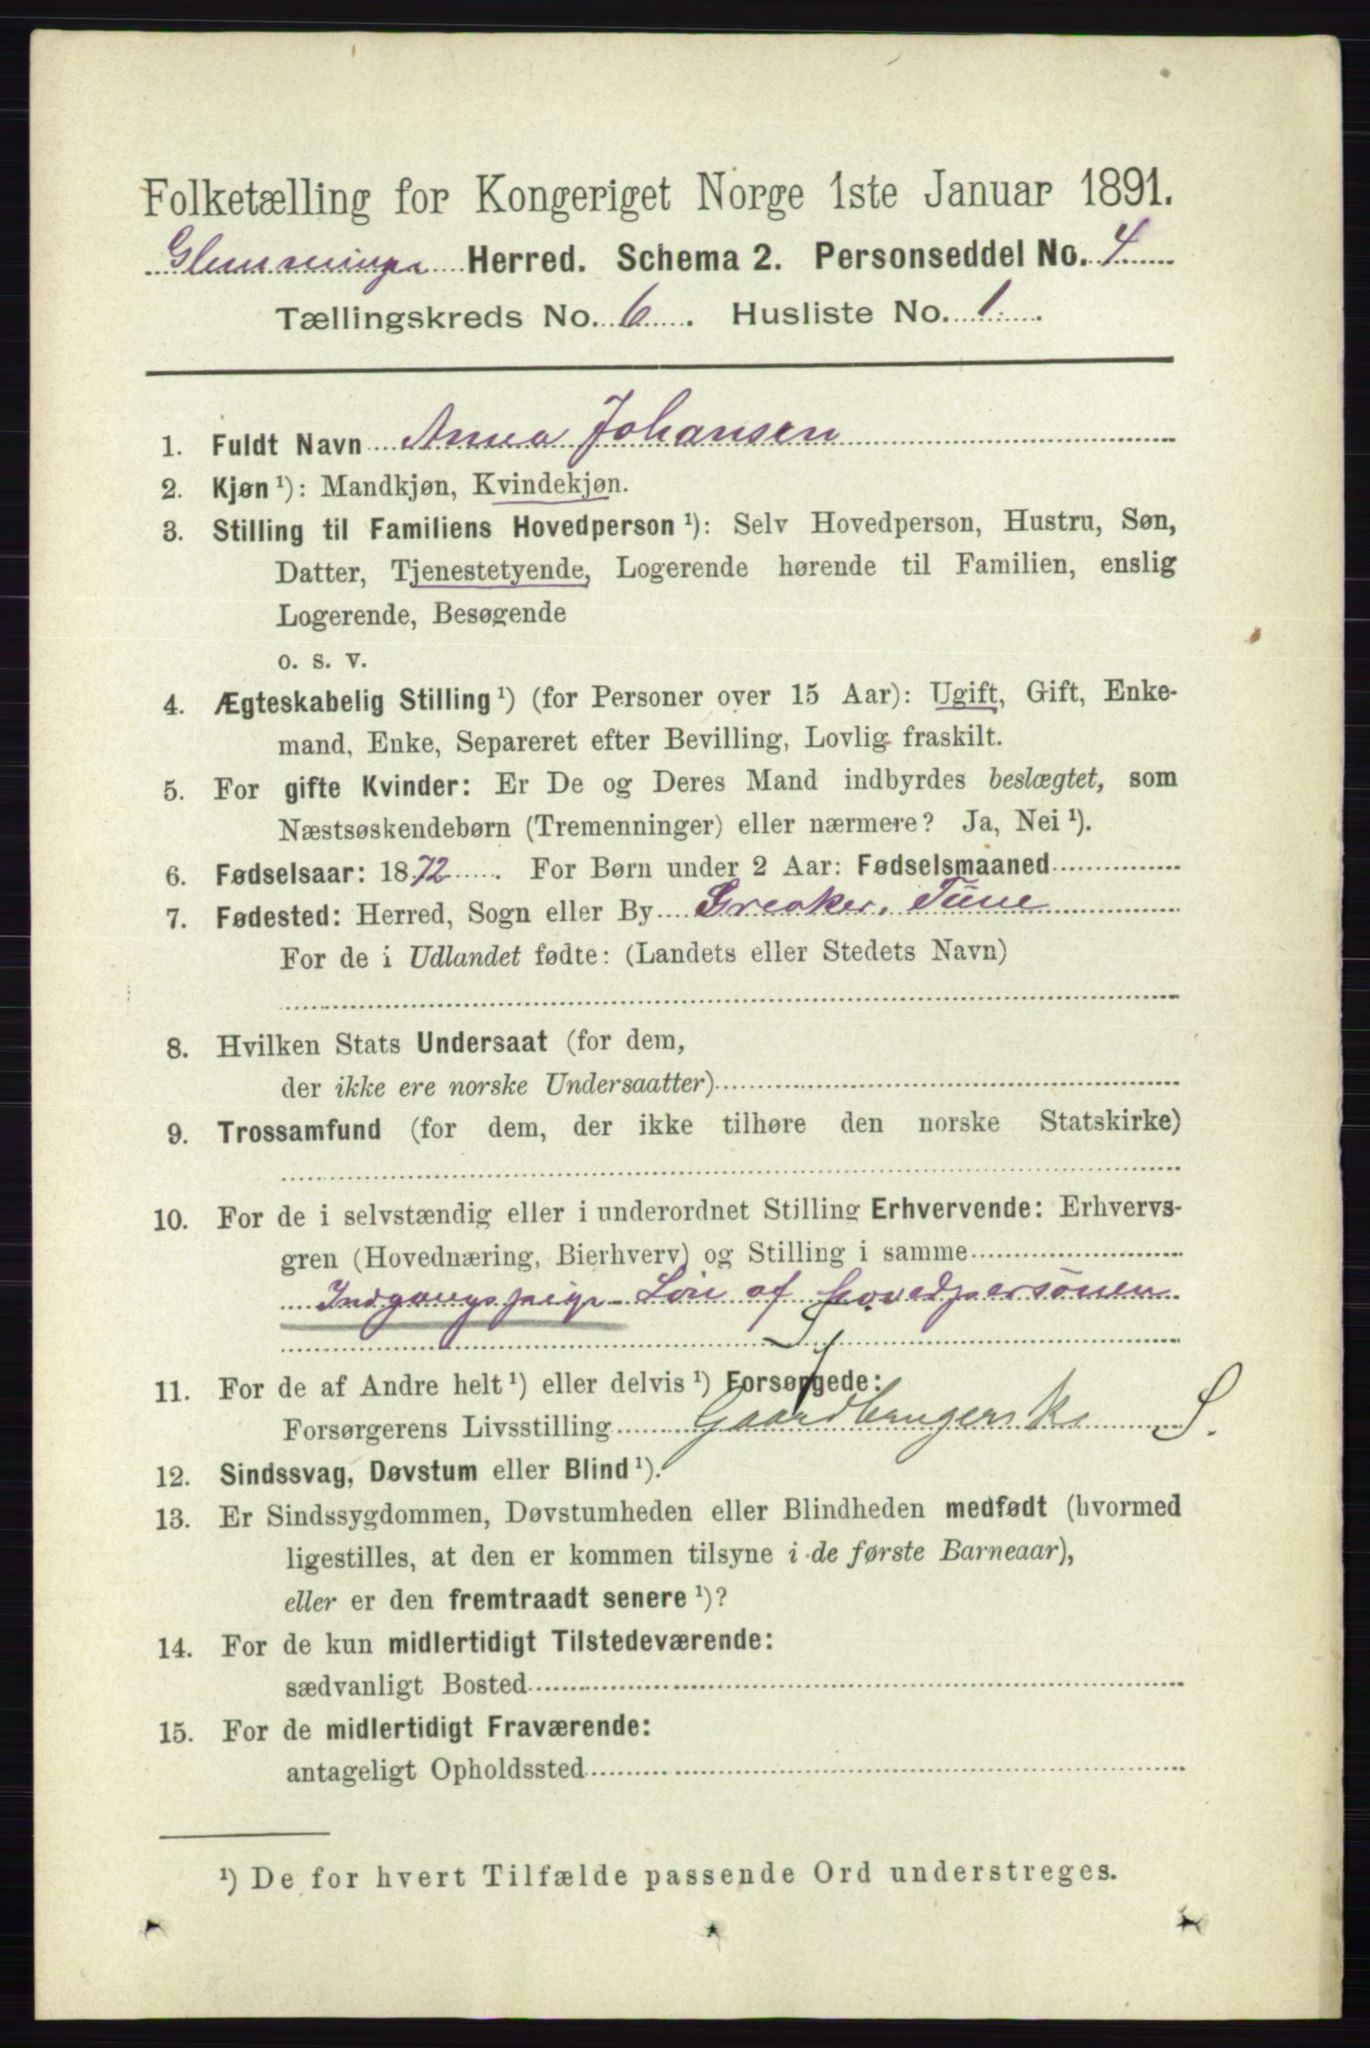 Folketælling for Kongeriget Norge 1ste Januar 1891.
Glemminge Herred. Schema 2. Personseddel No. 4
Tællingskreds No. 6. Husliste No. 1.
1. Fuldt Navn Anna Johansen
2. Kjøn ¹): Mandkjøn, Kvindekjøn.
3. Stilling til Familiens Hovedperson ¹): Selv Hovedperson, Hustru, Søn,
Datter, Tjenestetyende, Logerende hørende til Familien, enslig
Logerende, Besøgende
o. s. v.
4. Ægteskabelig Stilling ¹) (for Personer over 15 Aar): Ugift, Gift, Enke-
mand, Enke, Separeret efter Bevilling, Lovlig fraskilt.
5. For gifte Kvinder: Er De og Deres Mand indbyrdes beslægtet, som
Næstsøskendebørn (Tremenninger) eller nærmere? Ja, Nei ¹).
6. Fødselsaar: 1872. For Børn under 2 Aar: Fødselsmaaned
7. Fødested: Herred, Sogn eller By Greaker, Tune
For de i Udlandet fødte: (Landets eller Stedets Navn)
8. Hvilken Stats Undersaat (for dem,
der ikke ere norske Undersaatter)
9. Trossamfund (for dem, der ikke tilhøre den norske Statskirke)
10. For de i selvstændig eller i underordnet Stilling Erhvervende: Erhvervs-
gren (Hovednæring, Bierhverv) og Stilling i samme
Indgangspige Lön af hovedpersonen
11. For de af Andre helt ¹) eller delvis ¹) Forsørgede:
Forsørgerens Livsstilling Gaardbrugerske S.
12. Sindssvag, Døvstum eller Blind ¹).
13. Er Sindssygdommen, Døvstumheden eller Blindheden medfødt (hvormed
ligestilles, at den er kommen tilsyne i de første Barneaar),
eller er den fremtraadt senere ¹)?
14. For de kun midlertidigt Tilstedeværende:
sædvanligt Bosted
15. For de midlertidigt Fraværende:
antageligt Opholdssted
¹) De for hvert Tilfælde passende Ord understreges.